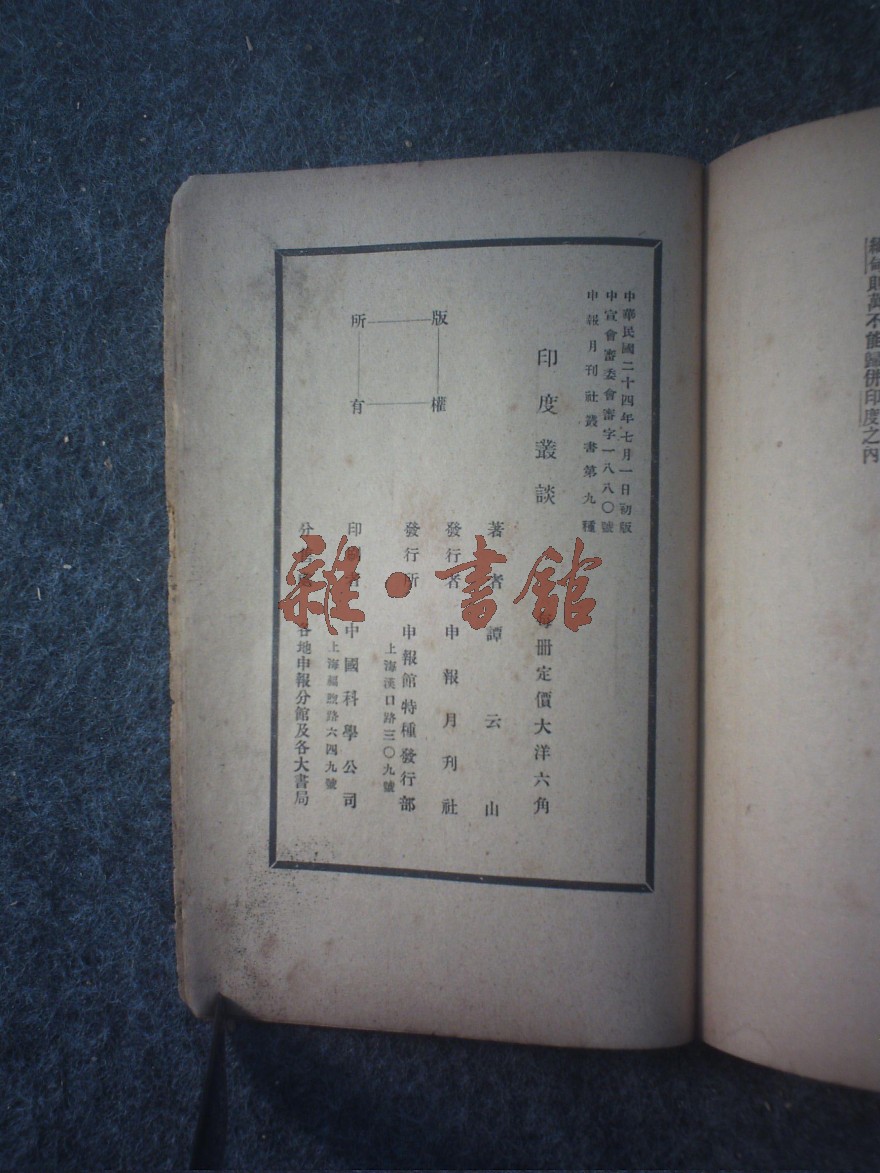 中華民國二十四年七月一日初版
中宣會審委會審字一八八〇號
申報月刊社叢書第九種
印度叢談
每册定價大洋六角
著者 譚云山
發行者 申報月刊社
發行所 申報館特種發行部
上海漢口路三〇九號
印刷者 中國科學公司
上海福煦路六四九號
各地申報分館及各大書局
版權
所有
雜·書館
則萬不能歸併印度之內